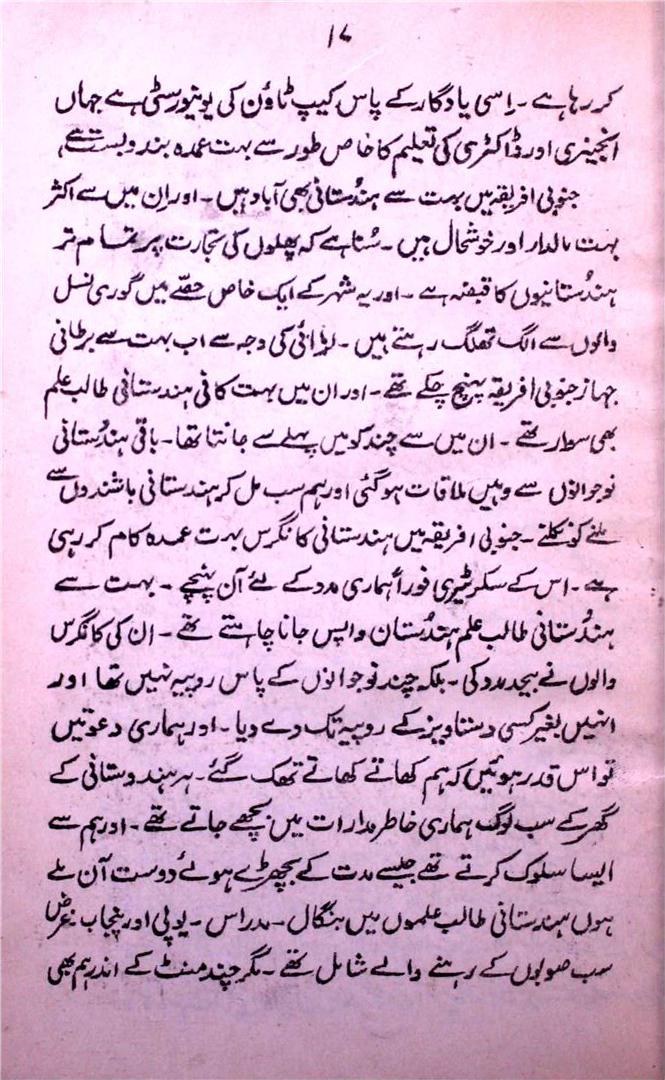 ۱۷
کر رہا ہے ۔ اِسی یادگار کے پاس کیپ ٹاؤن کی یونیورسٹی ہے جہاں
انجینری اور ڈاکٹری کی تعلیم کا خاص طور سے بہت عمدہ بندوبست ہے،
جنوبی افریقہ میں بہت سے ہندُستانی بھی آباد ہیں ۔ اور اِن میں سے اکثر
بہت مالدار اور خوشحال ہیں ۔ سُنا ہے کہ پھلوں کی تجارت پر تمام تر
ہندُستانیوں کا قبضہ ہے ۔ اور یہ شہر کے ایک خاص حصّے میں گوری نسل
والوں سے الگ تھلگ رہتے ہیں ۔ لڑائی کی وجہ سے اب بہت سے برطانی
جہاز جنوبی افریقہ پہنچ چکے تھے ۔ اور ان میں بہت کافی ہندستانی طالب علم
بھی سوار تھے ۔ ان میں سے چند کو میں پہلے سے جانتا تھا۔ باقی ہندُستانی
نوجوانوں سے وہیں ملاقات ہو گئی اور ہم سب مل کر ہندستانی باشندوں سے
ملنے کو نکلے ۔ جنوبی افریقہ میں ہندستانی کانگرس بہت عمدہ کام کر رہی
ہے ۔ اس کے سکرٹیری فوراً ہماری مدد کے لئے آن پہنچے ۔ بہت سے
ہندُستانی طالب علم ہندُستان واپس جانا چاہتے تھے ۔ ان کی کانگرس
والوں نے بیحد مدد کی ۔ بلکہ چند نوجوانوں کے پاس روپیہ نہیں تھا اور
انہیں بغیر کسی دستاویز کے روپیہ تک دے دیا ۔ اور ہماری دعوتیں
تو اس قدر ہوئیں کہ ہم کھاتے کھاتے تھک گئے ۔ ہر ہندوستانی کے
گھر کے سب لوگ ہماری خاطر مدارات میں بچھے جاتے تھے ۔ اور ہم سے
ایسا سلوک کرتے تھے جیسے مدت کے بچھڑے ہوئے دوست آن ملے
ہوں ہندستانی طالب علموں میں بنگال ۔ مدراس ۔ یوپی اور پنجاب غرض
سب صوبوں کے رہنے والے شامل تھے ۔ مگر چند منٹ کے اندر ہم بھی